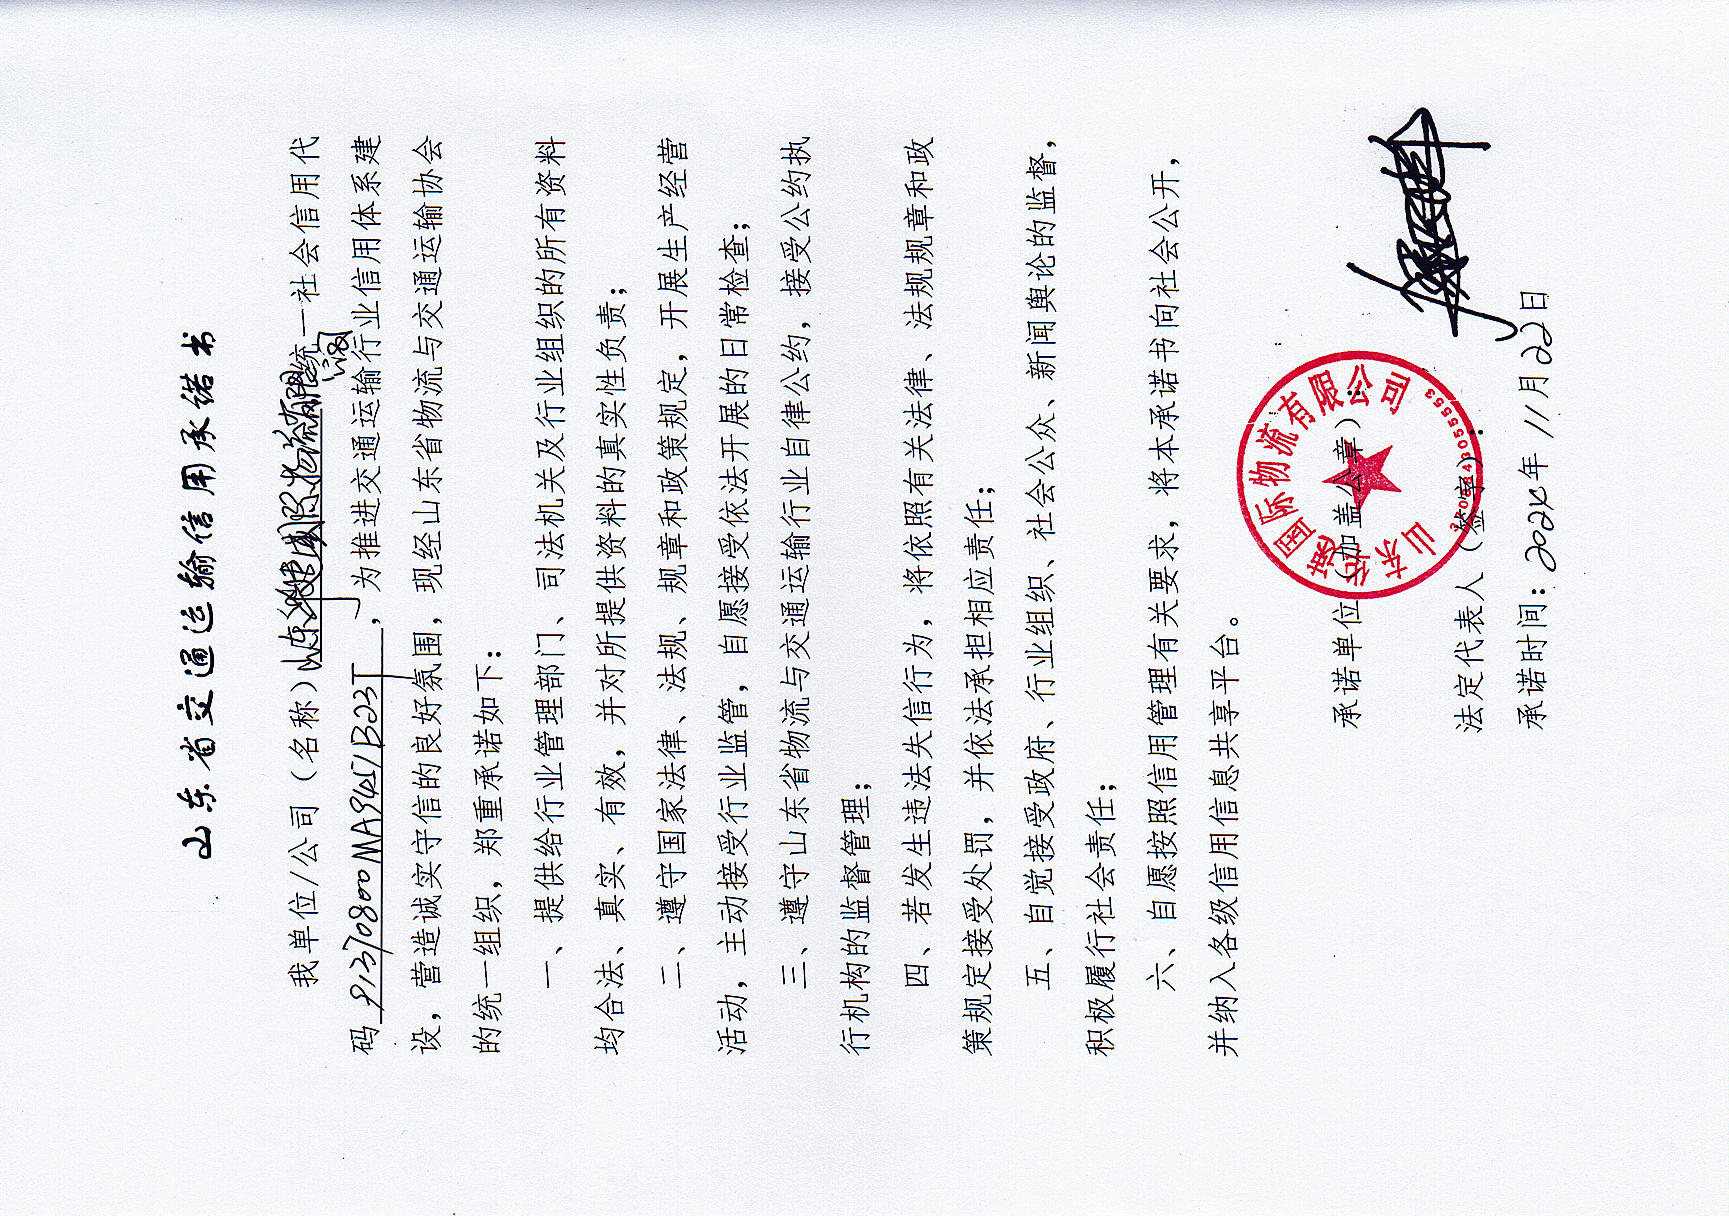 山东省交通运输信用承诺书
我单位/公司（名称）山东华速国际物流有限公司统一社会信用代
码91370800MA9451B23T，为推进交通运输行业信用体系建
设，营造诚实守信的良好氛围，现经山东省物流与交通运输协会
的统一组织，郑重承诺如下：
一、提供给行业管理部门、司法机关及行业组织的所有资料
均合法、真实、有效，并对所提供资料的真实性负责；
二、遵守国家法律、法规、规章和政策规定，开展生产经营
活动，主动接受行业监管，自愿接受依法开展的日常检查；
三、遵守山东省物流与交通运输行业自律公约，接受公约执
行机构的监督管理；
四、若发生违法失信行为，将依照有关法律、法规规章和政
策规定接受处罚，并依法承担相应责任；
五、自觉接受政府、行业组织、社会公众、新闻舆论的监督，
积极履行社会责任；
六、自愿按照信用管理有关要求，将本承诺书向社会公开，
并纳入各级信用信息共享平台。
山东华速国际物流有限公司
承诺单位（加盖公章）：
法定代表人（签字）：
承诺时间：2024年11月22日